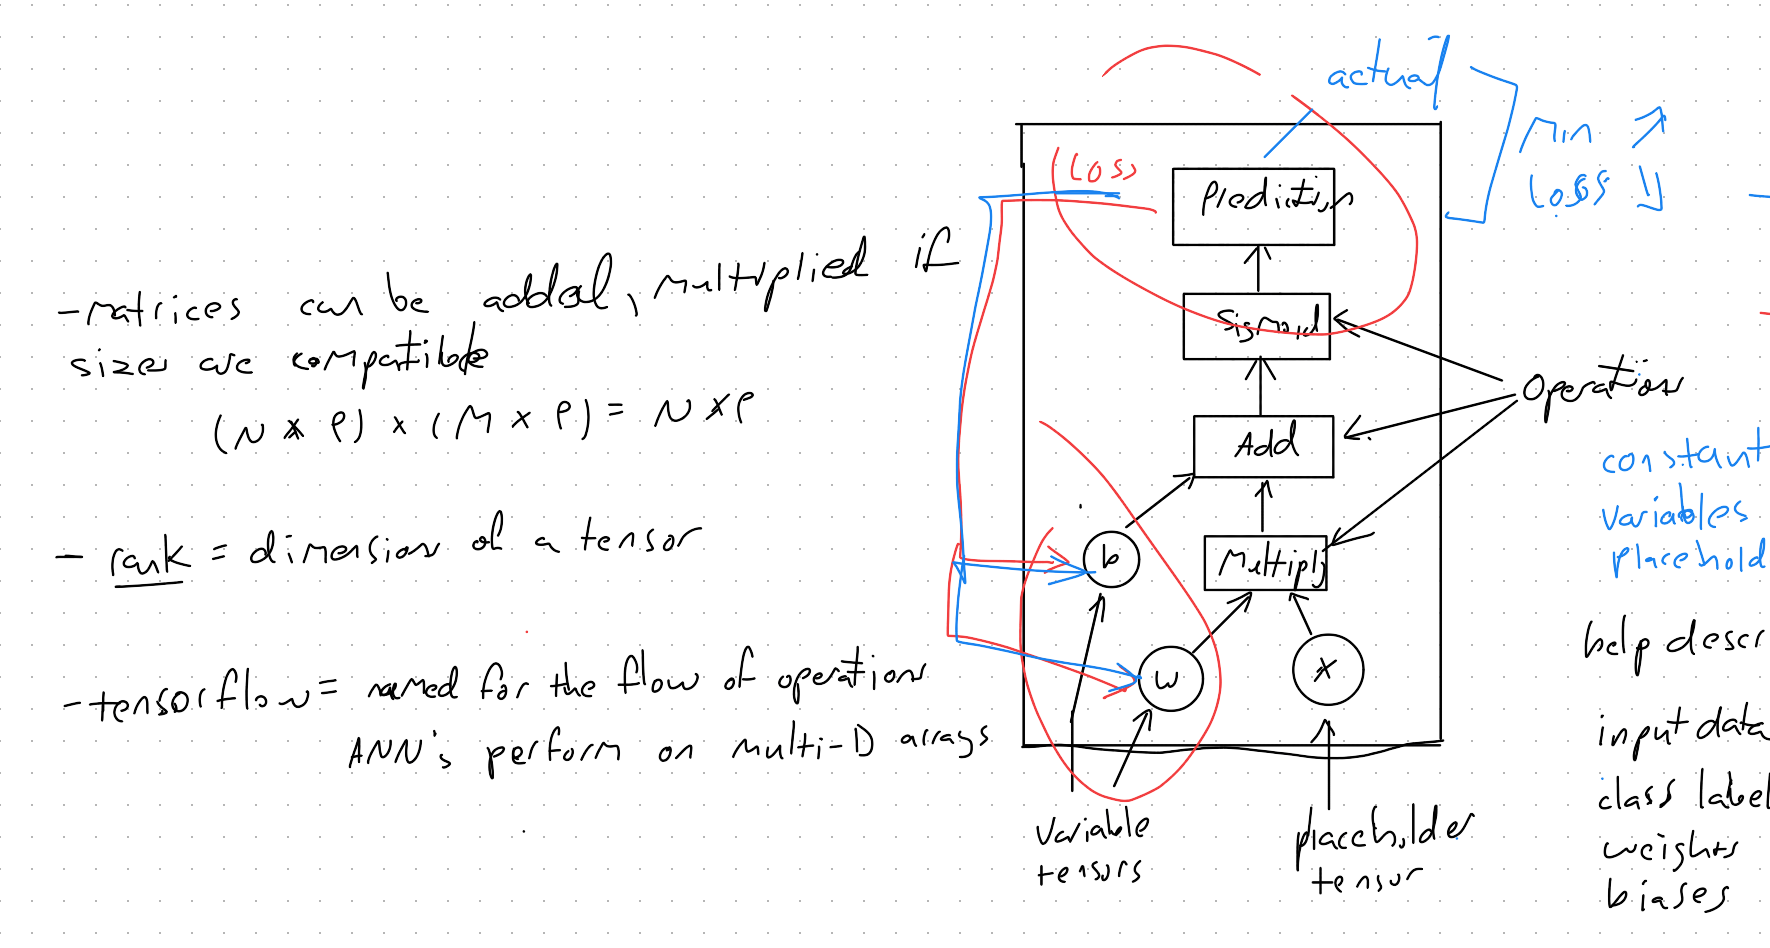 - matrices can be added, multiplied if
sizes are compatible
(N x P) x (M x P) = N x P
- rank = dimension of a tensor
- tensorflow = named for the flow of operations
ANN's perform on multi-D arrays
actual
Min
Loss
Loss
Prediction
Sigmoid
Add
Multiply
b
w
x
Operation
variable
tensors
placeholder
tensor
constant
variables
placehold
help descr
input data
class label
weights
biases